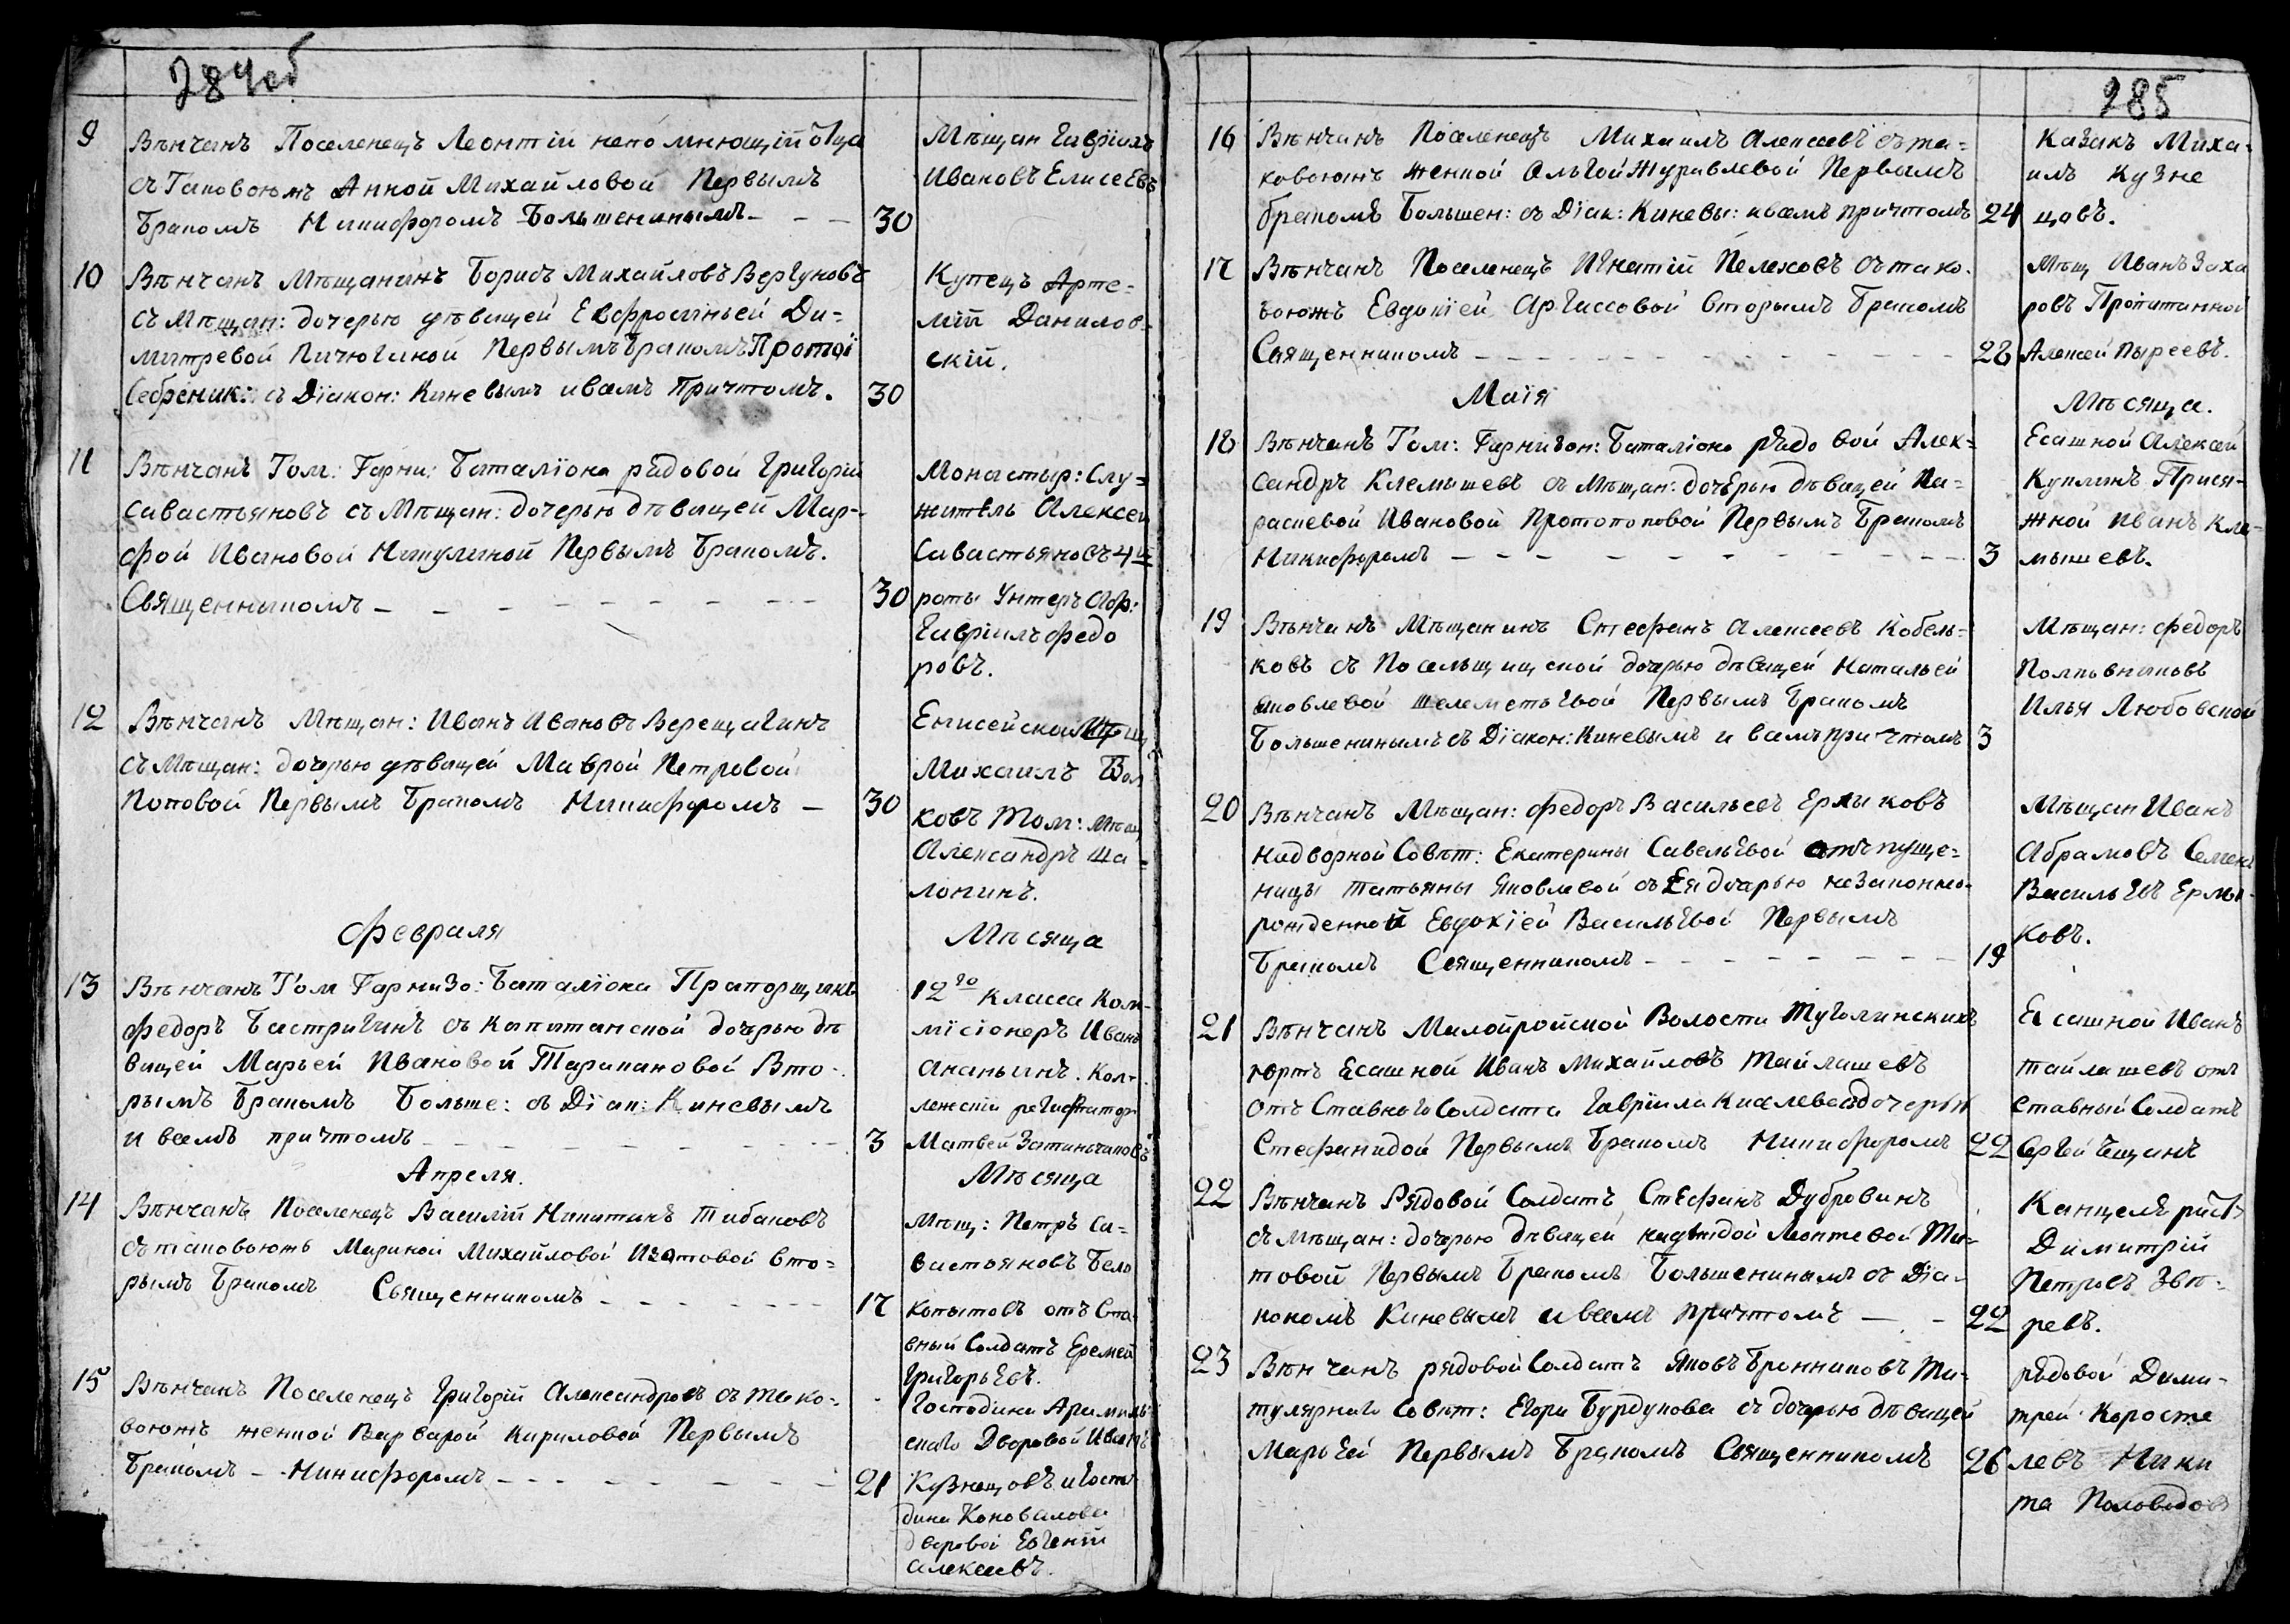 284 об
9 Вѣнчанъ Поселенецъ Леонтій непомнющій отца
съ Таковоюжъ Анной Михайловой Первымъ
Бракомъ Никифоромъ Большенинымъ - - - 30
Мѣщан Гавріилъ
Ивановъ Елисеевъ
10 Вѣнчанъ Мѣщанинъ Борисъ Михайловъ Вергуновъ
съ Мѣщан: дочерью дѣвицей Евфросиньей Ди=
митревой Пичюгиной Первымъ Бракомъ Протоі
Сребреник: съ Діакон: Киневымъ и всемъ Причтомъ. 30
Купецъ Арте=
мій Данилов=
скій.
11 Вѣнчанъ Том: Гарни: Баталіона рядовой Григорій
Савастьяновъ съ Мѣщан: дочерью дѣвицей Мар-
фой Ивановой Никулиной Первымъ Бракомъ.
Священникомъ - - - - - - - - 30
Монастыр: Слу=
житель Алексей
Савастьяновъ 4й
роты Унтеръ Оф:
Гавріилъ Федо
ровъ.
12 Вѣнчанъ Мѣщан: Иванъ Ивановъ Верещагинъ
съ Мѣщан: дочерью дѣвицей Маврой Петровой
Поповой Первымъ Бракомъ Никифоромъ - 30
Енисейской Мѣщ
Михаилъ Вол
ковъ Том: Мѣщ
Александръ Ша=
лонинъ.
Февраля Мѣсяца
13 Вѣнчанъ Том Гарнизо: Баталіона Прапорщикъ
Федоръ Бастригинъ съ Капитанской дочерью дѣ
вицей Марьей Ивановой Таракановой Вто-
рымъ Бракомъ Больше: съ Діак: Киневымъ
и всемъ причтомъ - - - - - - - 3
12го класса Ком-
місіонеръ Иванъ
Ананьинъ. Кол-
лежскій регистратор
Матвей
Апреля. Мѣсяца
14 Вѣнчанъ Поселенецъ Василій Никитинъ Тибаковъ
съ таковоюжъ Мариной Михайловой Изотовой Вто=
рымъ Бракомъ Священникомъ - - - - - - 17
Мѣщ: Петръ Са=
вастьяновъ Бело
копытовъ отъ Ста
вный Солдатъ Еремей
Григорьевъ.
15 Вѣнчанъ Поселенецъ Григорій Александровъ съ тако=
воюжъ женкой Варварой Кириловой Первымъ
Бракомъ - Никифоромъ - - - - - - - 21
Господина
скаго Дворовой Иванъ
Кузнецовъ и Госпо
дина Коновалова
дворовой Евгеній
Алексеевъ.
285
16 Вѣнчанъ Поселенецъ Михаилъ Алексеевъ съ та=
ковоюжъ женкой Ольгой Журавлевой Первымъ
бракомъ Большен: съ Діак: Киневы: и всемъ причтомъ 24
Казакъ Миха=
илъ Кузне
цовъ.
17 Вѣнчанъ Поселенецъ Игнатій Пелеховъ съ тако-
воюжъ Евдокіей Аргиссовой Вторымъ Бракомъ
Священникомъ - - - - - - - - - - - 28
Мѣщ Иванъ Заха
ровъ Пропитанной
Алексей Пыреевъ.
Маія Мѣсяца.
18 Вѣнчанъ Том: Гарнизон: Баталіона рядовой Алек=
сандръ Клемышевъ съ Мѣщан: дочерью дѣвицей Па=
расцевой Ивановой Протопоповой Первымъ Бракомъ
Никифоромъ - - - - - - - - - - 3
Есашной Алексей
Куплинъ Прися-
жной Иванъ Кле-
мышевъ.
19 Вѣнчанъ Мѣщанинъ Стефанъ Алексеевъ Кобель=
ковъ съ Посельщицской дочерью дѣвицей Натальей
Яковлевой Шелеметьевой Первымъ Бракомъ
Большенинымъ съ Діакон: Киневымъ и всемъ причтомъ 3
Мѣщан: Федоръ
Полковниковъ
Илья Любовской
20 Вѣнчанъ Мѣщан: Федоръ Васильевъ Ермыковъ
Надворной Совѣт: Екатерины Савельевой отъпуще=
ницы Татьяны Яковлевой съ Ея дочерью незаконно-
рожденной Евдокіей Васильевой Первымъ
Бракомъ Священникомъ - - - - - - - 19
Мѣщан Иванъ
Абрамовъ Семенъ
Васильевъ Ермы-
ковъ.
21 Вѣнчанъ Малойройской Волости Туголинскихъ
юртъ Есашной Иванъ Михайловъ Тайлашевъ
отъ Ставного Солдата Гавріила Киселева съ дочерью
Стефанидой Первымъ Бракомъ Никифоромъ 22
Есашной Иванъ
Тайлашевъ отъ
Ставный Солдатъ
Сергей Чещинъ
22 Вѣнчанъ Рядовой Солдатъ Стефанъ Дубровинъ
съ Мѣщан: дочерью дѣвицей надеждой Леонтевой Ти=
товой Первымъ Бракомъ Большенинымъ съ Діа-
кономъ Киневымъ и всемъ причтомъ - - 22
Канцеляристъ
Димитрій
Петровъ Звѣ-
ревъ.
23 Вѣнчанъ рядовой Солдатъ Яковъ Бронниковъ Ти-
тулярнаго Совѣт: Егора Бурдукова съ дочерью дѣвицей
Марьей Первымъ Бракомъ Священникомъ 26
рядовой Дими-
трей Коросте
левъ Ники
та Половодов